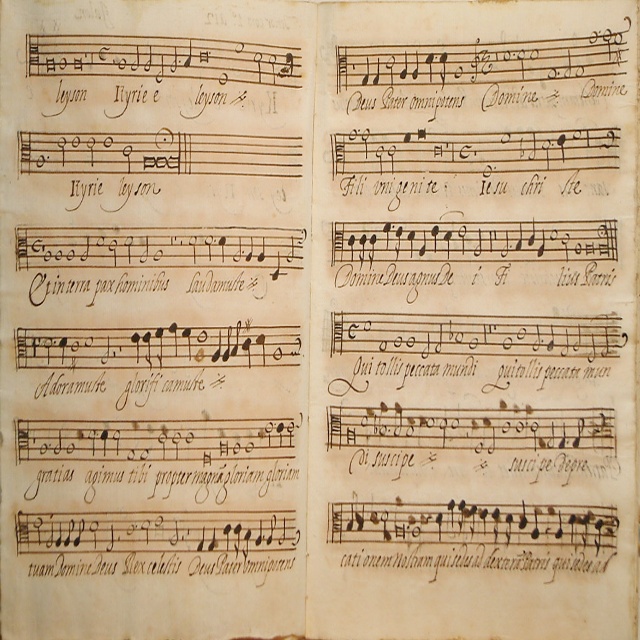 leyson Kyrie e leyson
Kyrie leyson
Et in terra pax hominibus laudamuste
Adoramuste glorifi camuste
gratias agimus tibi propter magnã gloriam gloriam
tuam Domine Deus Rex celestis Deus Pater omnipotens
Deus Pater omnipotens Domine Domine
Fili unigenite Iesu chri ste
Domine Deus agnus De i Fi lius Patris
Qui tollis peccata mundi qui tollis peccata mun
di suscipe suscipe depre
cationem nostram qui sedes ad dexterã Patris qui sedes ad